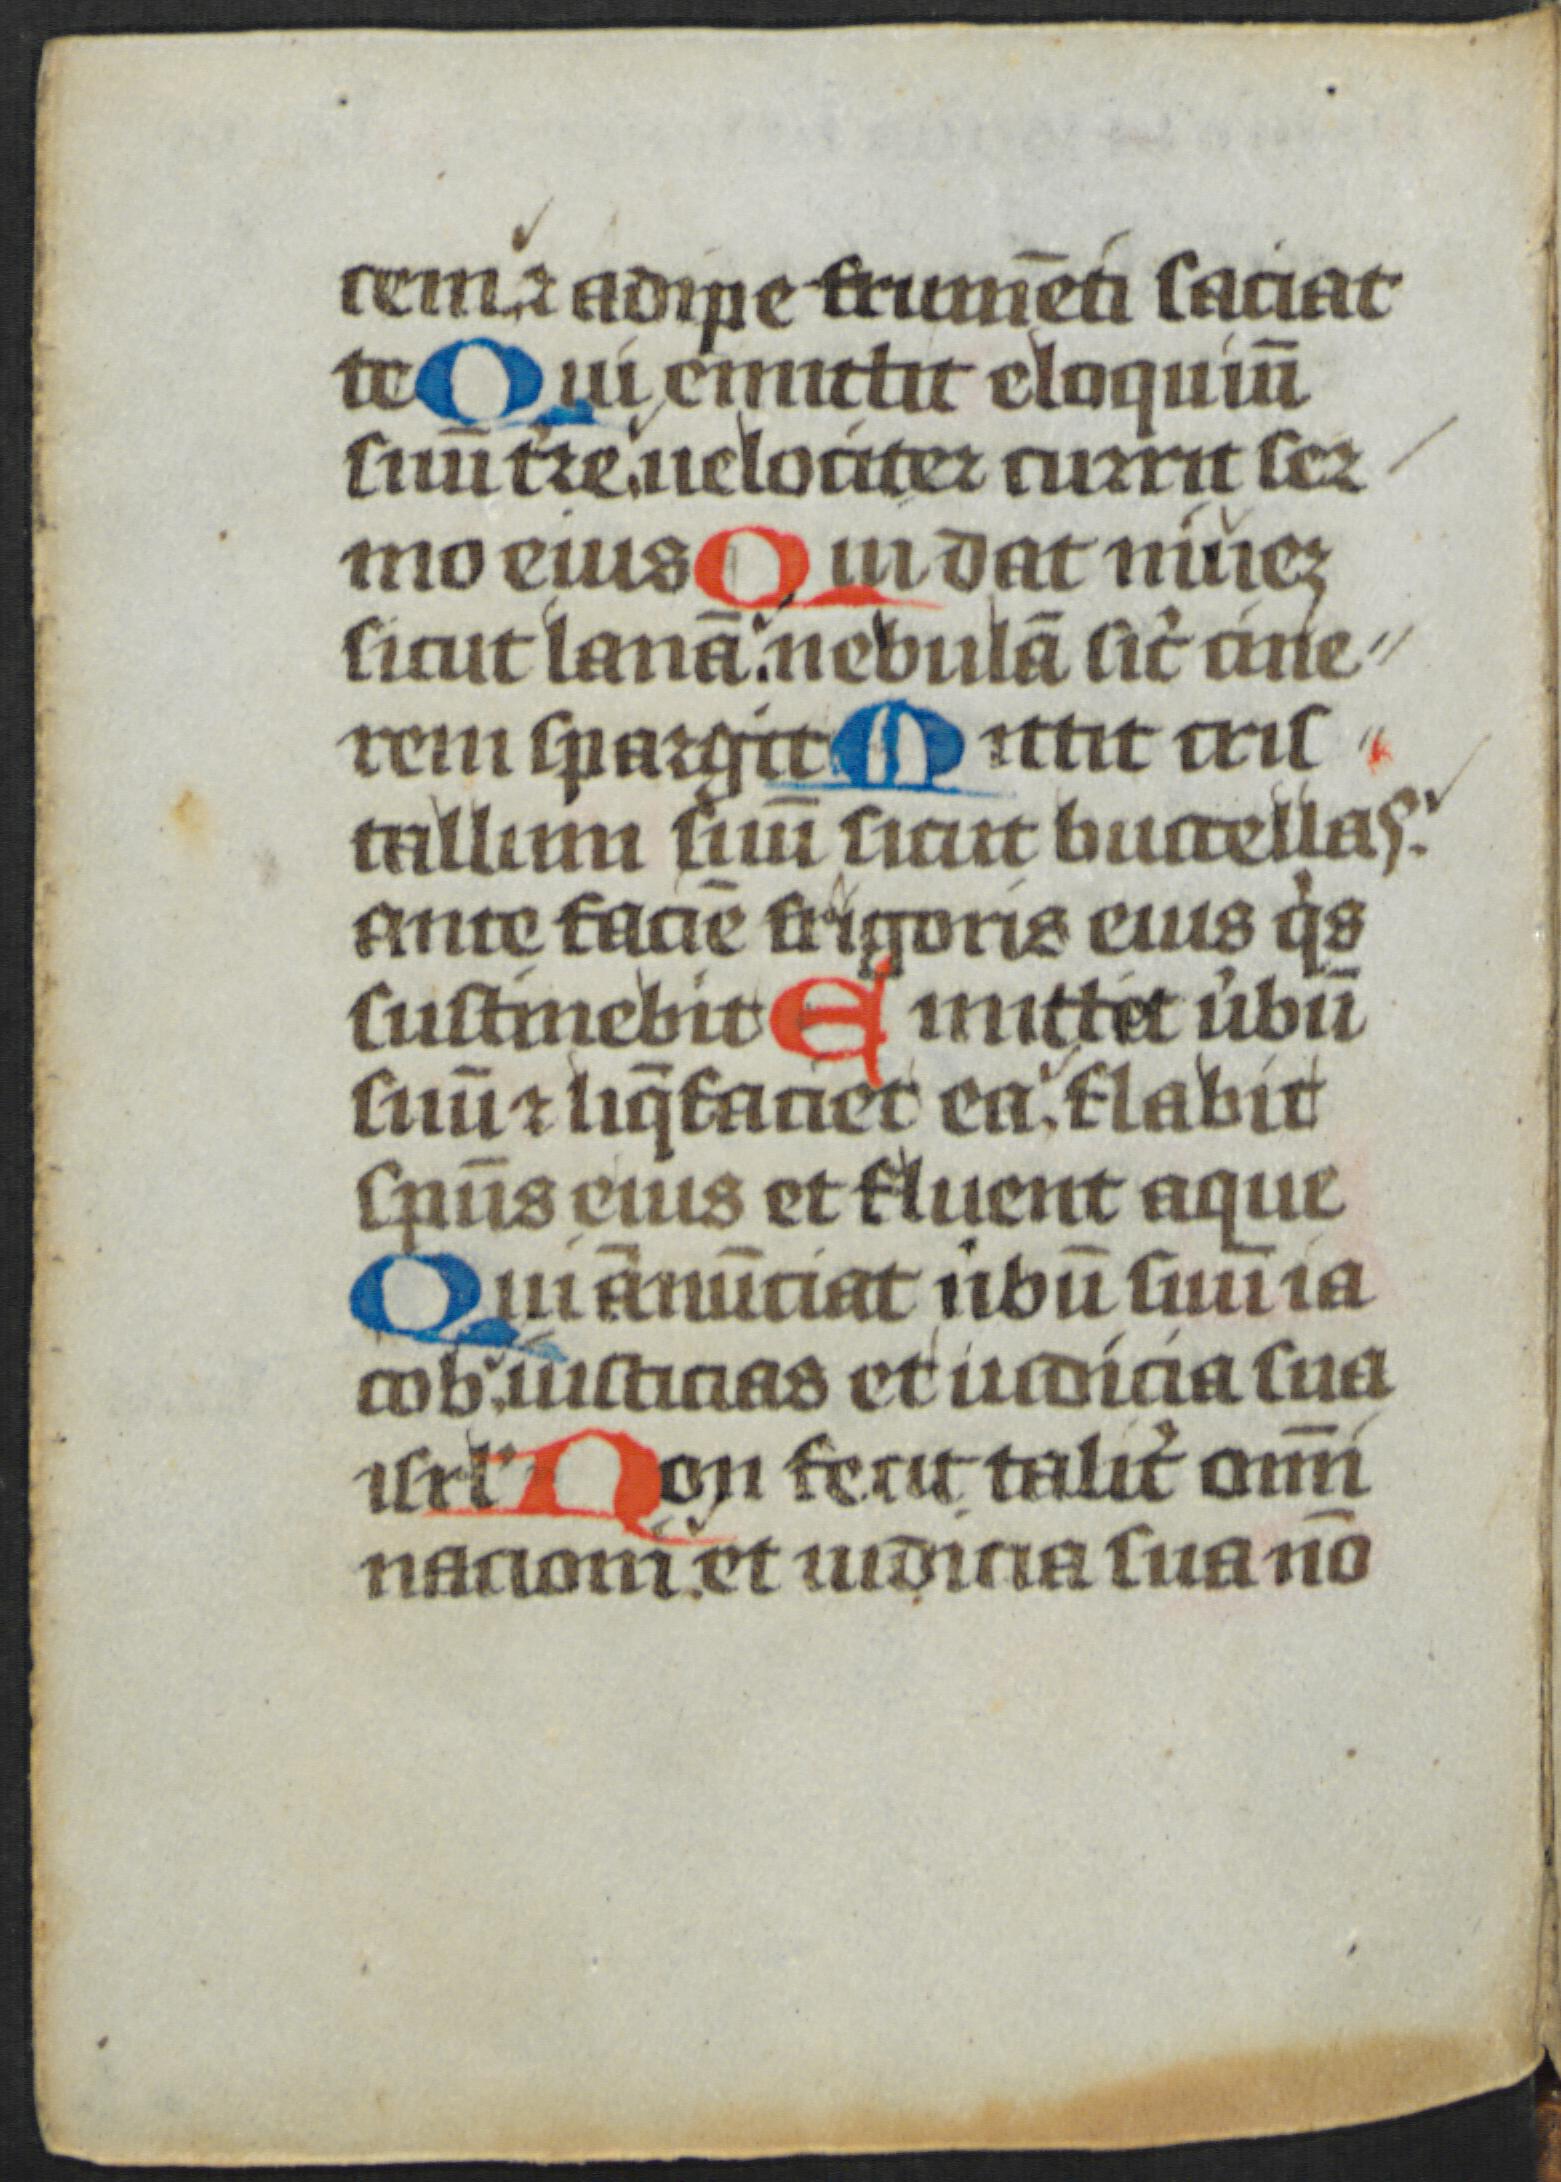 cem ⁊ adipe frumēti saciat
te Qui emittit eloquiū
suū t̓re. uelociter currit ser
mo eius Qui dat niueꝫ
sicut lanā. nebulā sic̓ cine
rem spargit Mittit cris
tallum suū sicut buccellas.
ante faciē frigoris eius qͥs
sustinebit Emittet u̓bū
suū ⁊ liq̄faciet ea. flabit
spūs eius et fluent aque
Qui ānūciat u̓bū suū ia
cob. iusticias et iudicia sua
isrl̓ Non fecit talit̓ om̄i
nacioni. et iudicia sua nō